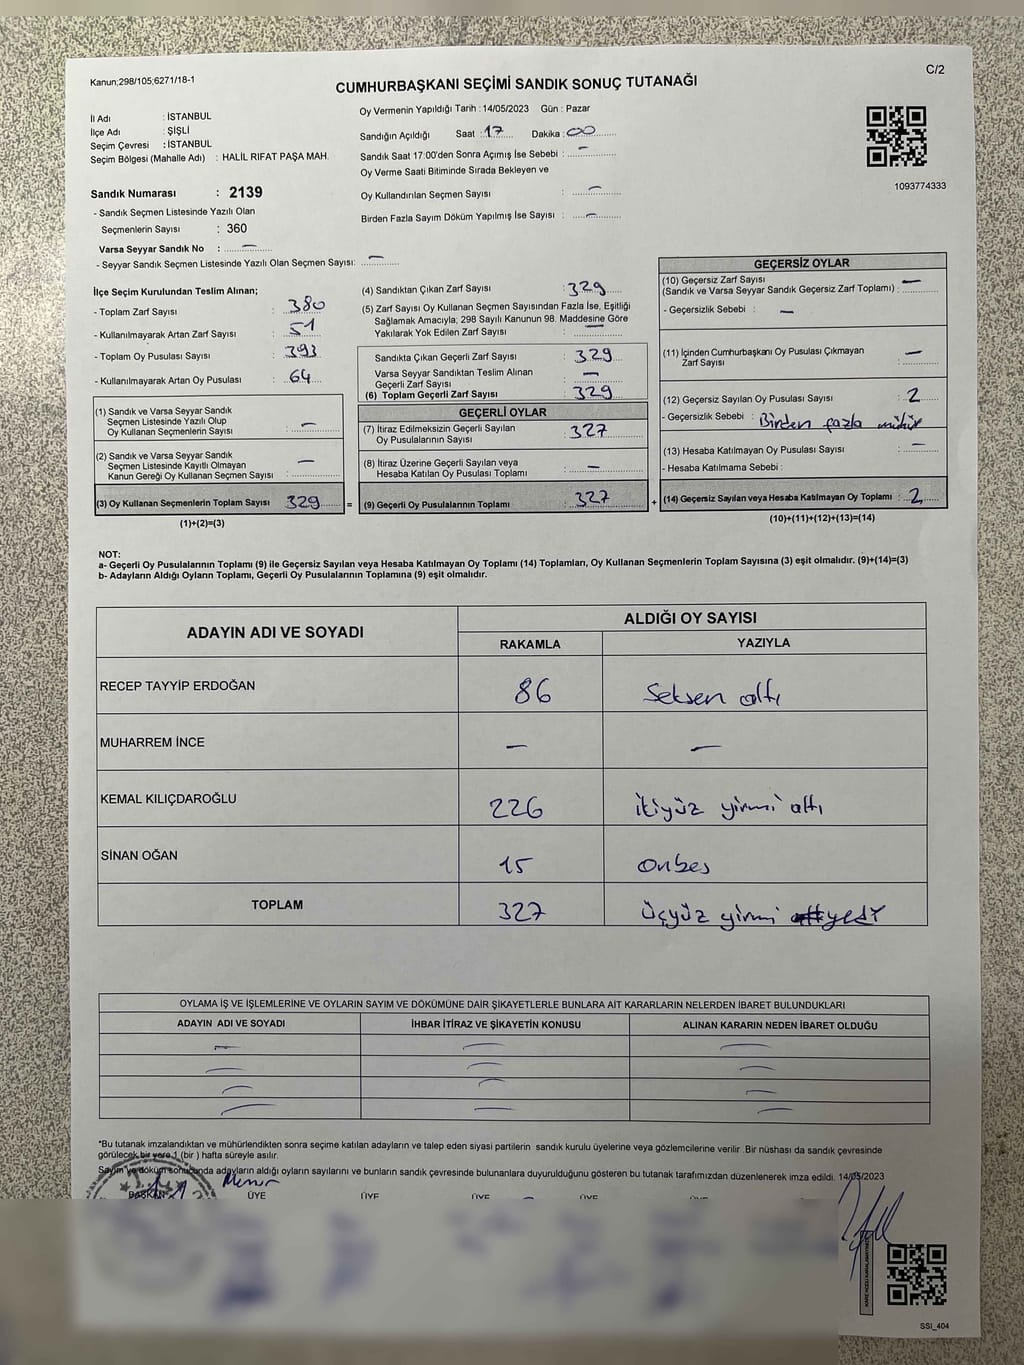 Kanun;298/105;6271/18-1
C/2
CUMHURBAŞKANI SEÇİMİ SANDIK SONUÇ TUTANAĞI
İl Adı : İSTANBUL
İlçe Adı : ŞİŞLİ
Seçim Çevresi : İSTANBUL
Seçim Bölgesi (Mahalle Adı) : HALİL RIFAT PAŞA MAH.
Sandık Numarası : 2139
- Sandık Seçmen Listesinde Yazılı Olan
Seçmenlerin Sayısı : 360
Varsa Seyyar Sandık No : —
- Seyyar Sandık Seçmen Listesinde Yazılı Olan Seçmen Sayısı: —
Oy Vermenin Yapıldığı Tarih : 14/05/2023 Gün : Pazar
Sandığın Açıldığı Saat : 17 Dakika : 00
Sandık Saat 17:00'den Sonra Açımış İse Sebebi : —
Oy Verme Saati Bitiminde Sırada Bekleyen ve
Oy Kullandırılan Seçmen Sayısı : —
Birden Fazla Sayım Döküm Yapılmış İse Sayısı : —
1093774333
İlçe Seçim Kurulundan Teslim Alınan;
- Toplam Zarf Sayısı : 380
- Kullanılmayarak Artan Zarf Sayısı : 51
- Toplam Oy Pusulası Sayısı : 393
- Kullanılmayarak Artan Oy Pusulası : 64
(1) Sandık ve Varsa Seyyar Sandık
Seçmen Listesinde Yazılı Olup
Oy Kullanan Seçmenlerin Sayısı : —
(2) Sandık ve Varsa Seyyar Sandık
Seçmen Listesinde Kayıtlı Olmayan
Kanun Gereği Oy Kullanan Seçmen Sayısı : —
(3) Oy Kullanan Seçmenlerin Toplam Sayısı : 329 =
(1)+(2)=(3)
(4) Sandıktan Çıkan Zarf Sayısı : 329
(5) Zarf Sayısı Oy Kullanan Seçmen Sayısından Fazla İse, Eşitliği
Sağlamak Amacıyla; 298 Sayılı Kanunun 98. Maddesine Göre
Yakılarak Yok Edilen Zarf Sayısı : —
Sandıkta Çıkan Geçerli Zarf Sayısı : 329
Varsa Seyyar Sandıktan Teslim Alınan
Geçerli Zarf Sayısı : —
(6) Toplam Geçerli Zarf Sayısı : 329
GEÇERLİ OYLAR
(7) İtiraz Edilmeksizin Geçerli Sayılan
Oy Pusulalarının Sayısı : 327
(8) İtiraz Üzerine Geçerli Sayılan veya
Hesaba Katılan Oy Pusulası Toplamı : —
(9) Geçerli Oy Pusulalarının Toplamı : 327 +
GEÇERSİZ OYLAR
(10) Geçersiz Zarf Sayısı
(Sandık ve Varsa Seyyar Sandık Geçersiz Zarf Toplamı) : —
- Geçersizlik Sebebi : —
(11) İçinden Cumhurbaşkanı Oy Pusulası Çıkmayan
Zarf Sayısı : —
(12) Geçersiz Sayılan Oy Pusulası Sayısı : 2
- Geçersizlik Sebebi : Birden fazla mühür
(13) Hesaba Katılmayan Oy Pusulası Sayısı : —
- Hesaba Katılmama Sebebi :
(14) Geçersiz Sayılan veya Hesaba Katılmayan Oy Toplamı : 2
(10)+(11)+(12)+(13)=(14)
NOT:
a- Geçerli Oy Pusulalarının Toplamı (9) ile Geçersiz Sayılan veya Hesaba Katılmayan Oy Toplamı (14) Toplamları, Oy Kullanan Seçmenlerin Toplam Sayısına (3) eşit olmalıdır. (9)+(14)=(3)
b- Adayların Aldığı Oyların Toplamı, Geçerli Oy Pusulalarının Toplamına (9) eşit olmalıdır.
ADAYIN ADI VE SOYADI ALDIĞI OY SAYISI
RAKAMLA YAZIYLA
RECEP TAYYİP ERDOĞAN 86 Seksen altı
MUHARREM İNCE — —
KEMAL KILIÇDAROĞLU 226 ikiyüz yirmi altı
SİNAN OĞAN 15 onbes
TOPLAM 327 üçyüz yirmi yedi
OYLAMA İŞ VE İŞLEMLERİNE VE OYLARIN SAYIM VE DÖKÜMÜNE DAİR ŞİKAYETLERLE BUNLARA AİT KARARLARIN NELERDEN İBARET BULUNDUKLARI
ADAYIN ADI VE SOYADI İHBAR İTİRAZ VE ŞİKAYETİN KONUSU ALINAN KARARIN NEDEN İBARET OLDUĞU
— — —
— — —
— — —
— — —
*Bu tutanak imzalandıktan ve mühürlendikten sonra seçime katılan adayların ve talep eden siyasi partilerin sandık kurulu üyelerine veya gözlemcilerine verilir. Bir nüshası da sandık çevresinde
görülecek bir yere 1 (bir ) hafta süreyle asılır.
Sayım ve döküm sonucunda adayların aldığı oyların sayılarını ve bunların sandık çevresinde bulunanlara duyurulduğunu gösteren bu tutanak tarafımızdan düzenlenerek imza edildi. 14/05/2023
BAŞKAN ÜYE ÜYE ÜYE ÜYE
SSI_404